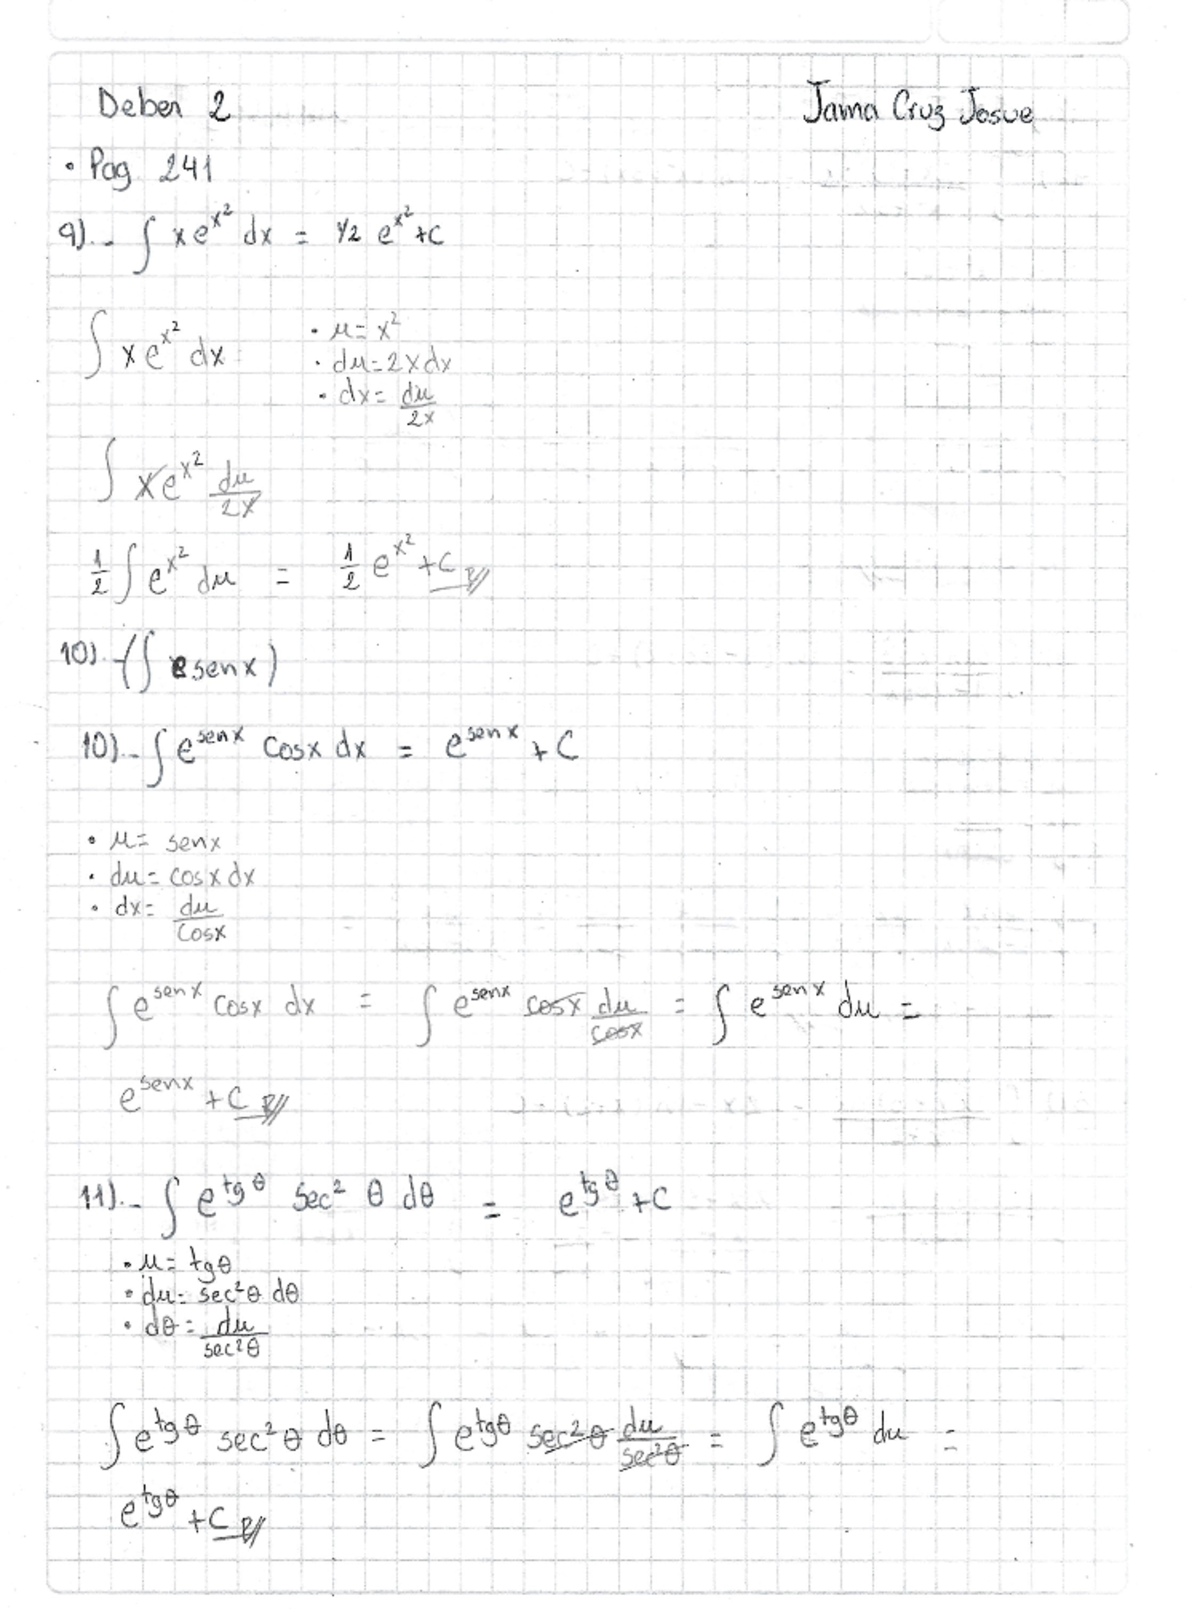 Deber 2
Jama Cruz Josue
• Pag 241
9).- ∫ x e^{x^2} dx = 1/2 e^{x^2} + C
∫ x e^{x^2} dx
• u = x^2
• du = 2x dx
• dx = du/2x
∫ x e^{x^2} du/2x
1/2 ∫ e^{x^2} du = 1/2 e^{x^2} + C R//
10).- (∫ e senx)
10).- ∫ e^{senx} Cosx dx = e^{senx} + C
• u = senx
• du = cosx dx
• dx = du/Cosx
∫ e^{senx} cosx dx = ∫ e^{senx} cosx du/cosx = ∫ e^{senx} du =
e^{senx} + C R//
11).- ∫ e^{tgθ} Sec^2 θ dθ = e^{tgθ} + C
• u = tgθ
• du = sec^2θ dθ
• dθ = du/sec^2θ
∫ e^{tgθ} sec^2θ dθ = ∫ e^{tgθ} sec^2θ du/sec^2θ = ∫ e^{tgθ} du =
e^{tgθ} + C R//